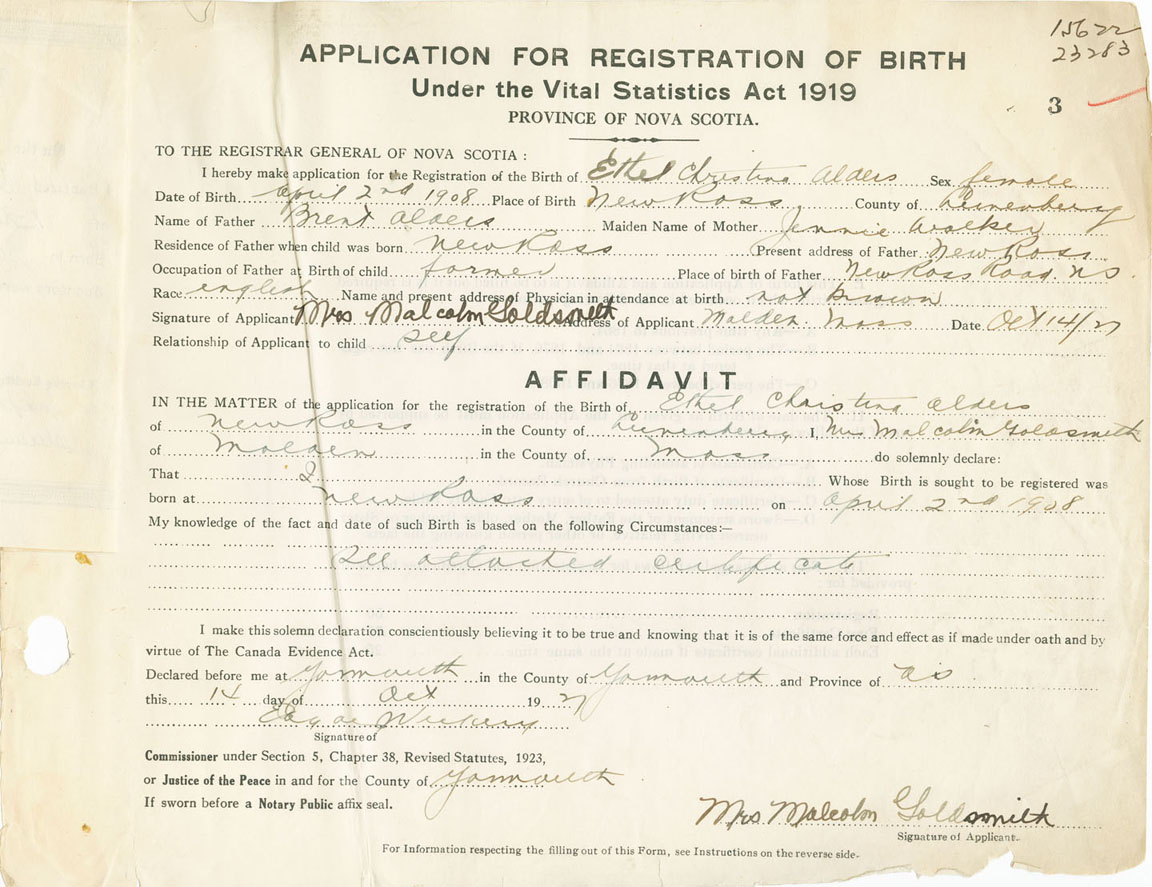 15622
23283
APPLICATION FOR REGISTRATION OF BIRTH
Under the Vital Statistics Act 1919
3
PROVINCE OF NOVA SCOTIA.
TO THE REGISTRAR GENERAL OF NOVA SCOTIA :
I hereby make application for the Registration of the Birth of Ethel Christina Alders Sex female
Date of Birth April 2nd 1908 Place of Birth New Ross County of Lunenburg
Name of Father Brent Alders Maiden Name of Mother Jennie Walker
Residence of Father when child was born New Ross Present address of Father New Ross
Occupation of Father at Birth of child farmer Place of birth of Father New Ross Road. NS
Race english Name and present address of Physician in attendance at birth not known
Signature of Applicant Mrs Malcolm Goldsmith Address of Applicant Malden Mass Date Oct 14/27
Relationship of Applicant to child self
AFFIDAVIT
IN THE MATTER of the application for the registration of the Birth of Ethel Christina Alders
of New Ross in the County of Lunenburg I, Mrs Malcolm Goldsmith
of Malden in the County of Mass do solemnly declare:
That I Whose Birth is sought to be registered was
born at New Ross on April 2nd 1908
My knowledge of the fact and date of such Birth is based on the following Circumstances:—
See attached certificate
I make this solemn declaration conscientiously believing it to be true and knowing that it is of the same force and effect as if made under oath and by
virtue of The Canada Evidence Act.
Declared before me at Yarmouth in the County of Yarmouth and Province of NS
this 14 day of Oct 1927
Signature of
Commissioner under Section 5, Chapter 38, Revised Statutes, 1923,
or Justice of the Peace in and for the County of Yarmouth
If sworn before a Notary Public affix seal.
Mrs Malcolm Goldsmith
Signature of Applicant.
For Information respecting the filling out of this Form, see Instructions on the reverse side.